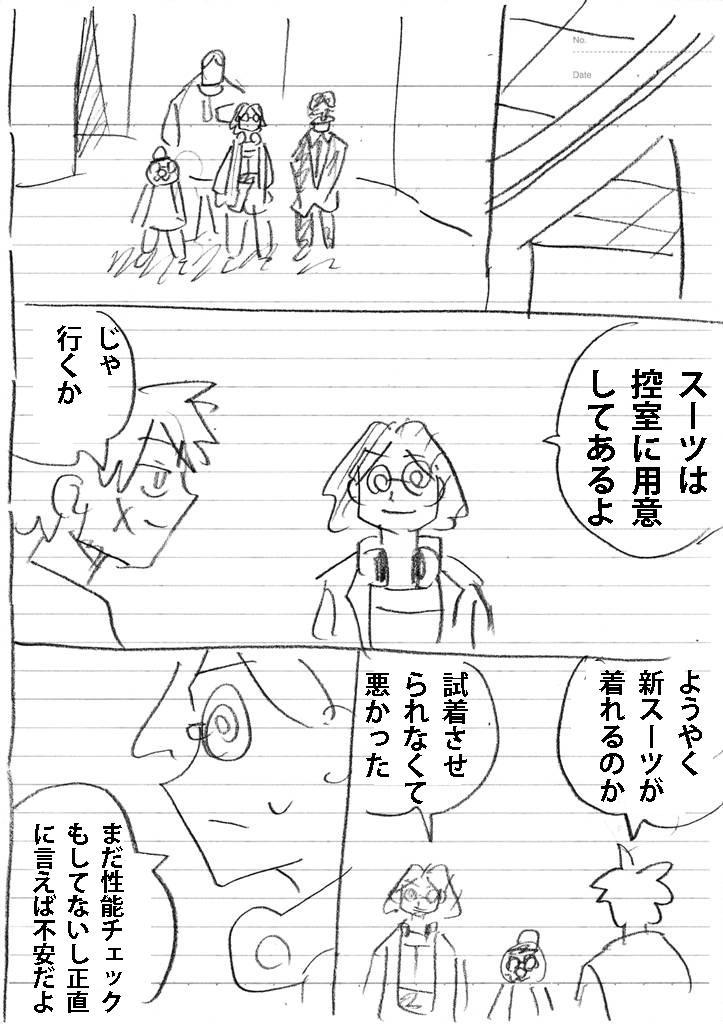 No.
Date
スーツは
控室に用意
してあるよ
じゃ
行くか
ようやく
新スーツが
着れるのか
試着させ
られなくて
悪かった
まだ性能チェック
もしてないし正直
に言えば不安だよ